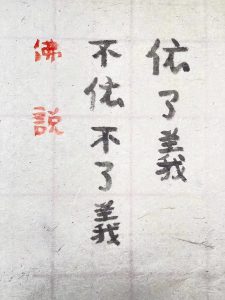 依了義
不依不了義
佛說